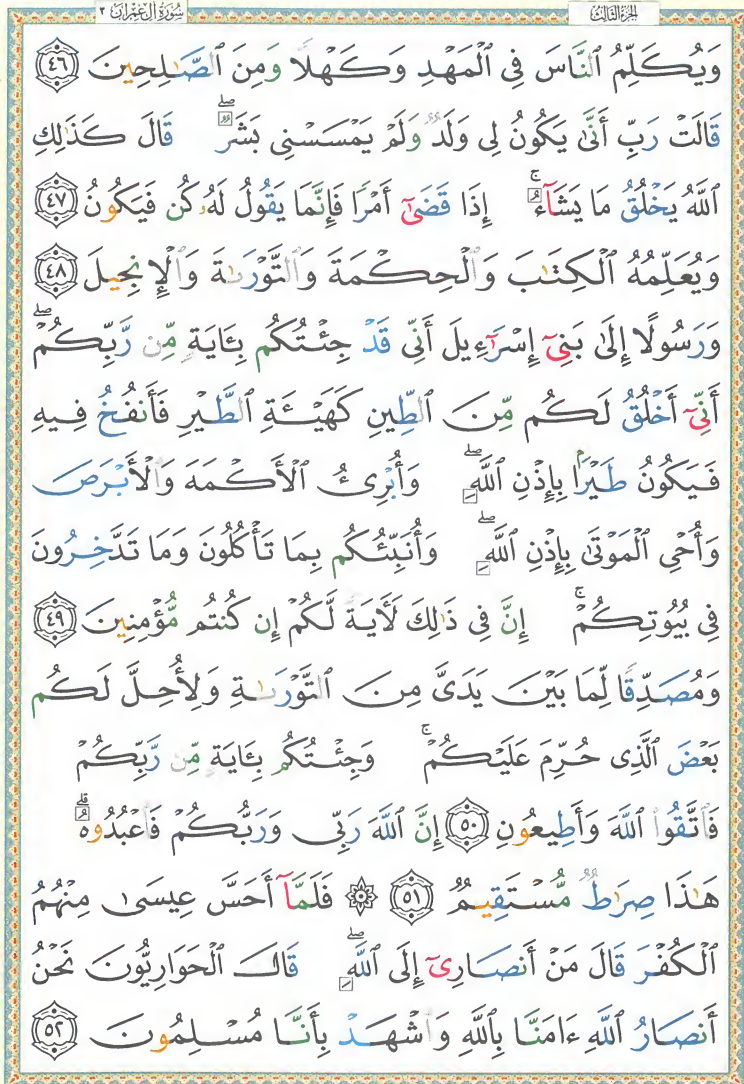 الجزء الثالث سورة آل عمران ٣
وَيُكَلِّمُ ٱلنَّاسَ فِى ٱلْمَهْدِ وَكَهْلًا وَمِنَ ٱلصَّٰلِحِينَ ٤٦
قَالَتْ رَبِّ أَنَّىٰ يَكُونُ لِى وَلَدٌ وَلَمْ يَمْسَسْنِى بَشَرٌ ۖ قَالَ كَذَٰلِكِ
ٱللَّهُ يَخْلُقُ مَا يَشَآءُ ۚ إِذَا قَضَىٰٓ أَمْرًا فَإِنَّمَا يَقُولُ لَهُۥ كُن فَيَكُونُ ٤٧
وَيُعَلِّمُهُ ٱلْكِتَٰبَ وَٱلْحِكْمَةَ وَٱلتَّوْرَىٰةَ وَٱلْإِنجِيلَ ٤٨
وَرَسُولًا إِلَىٰ بَنِىٓ إِسْرَٰٓءِيلَ أَنِّى قَدْ جِئْتُكُم بِـَٔايَةٍ مِّن رَّبِّكُمْ ۖ
أَنِّىٓ أَخْلُقُ لَكُم مِّنَ ٱلطِّينِ كَهَيْـَٔةِ ٱلطَّيْرِ فَأَنفُخُ فِيهِ
فَيَكُونُ طَيْرًۢا بِإِذْنِ ٱللَّهِ ۖ وَأُبْرِئُ ٱلْأَكْمَهَ وَٱلْأَبْرَصَ
وَأُحْىِ ٱلْمَوْتَىٰ بِإِذْنِ ٱللَّهِ ۖ وَأُنَبِّئُكُم بِمَا تَأْكُلُونَ وَمَا تَدَّخِرُونَ
فِى بُيُوتِكُمْ ۚ إِنَّ فِى ذَٰلِكَ لَـَٔايَةً لَّكُمْ إِن كُنتُم مُّؤْمِنِينَ ٤٩
وَمُصَدِّقًا لِّمَا بَيْنَ يَدَىَّ مِنَ ٱلتَّوْرَىٰةِ وَلِأُحِلَّ لَكُم
بَعْضَ ٱلَّذِى حُرِّمَ عَلَيْكُمْ ۚ وَجِئْتُكُم بِـَٔايَةٍ مِّن رَّبِّكُمْ
فَٱتَّقُوا۟ ٱللَّهَ وَأَطِيعُونِ ٥٠ إِنَّ ٱللَّهَ رَبِّى وَرَبُّكُمْ فَٱعْبُدُوهُ ۗ
هَٰذَا صِرَٰطٌ مُّسْتَقِيمٌ ٥١ ۞ فَلَمَّآ أَحَسَّ عِيسَىٰ مِنْهُمُ
ٱلْكُفْرَ قَالَ مَنْ أَنصَارِىٓ إِلَى ٱللَّهِ ۖ قَالَ ٱلْحَوَارِيُّونَ نَحْنُ
أَنصَارُ ٱللَّهِ ءَامَنَّا بِٱللَّهِ وَٱشْهَدْ بِأَنَّا مُسْلِمُونَ ٥٢